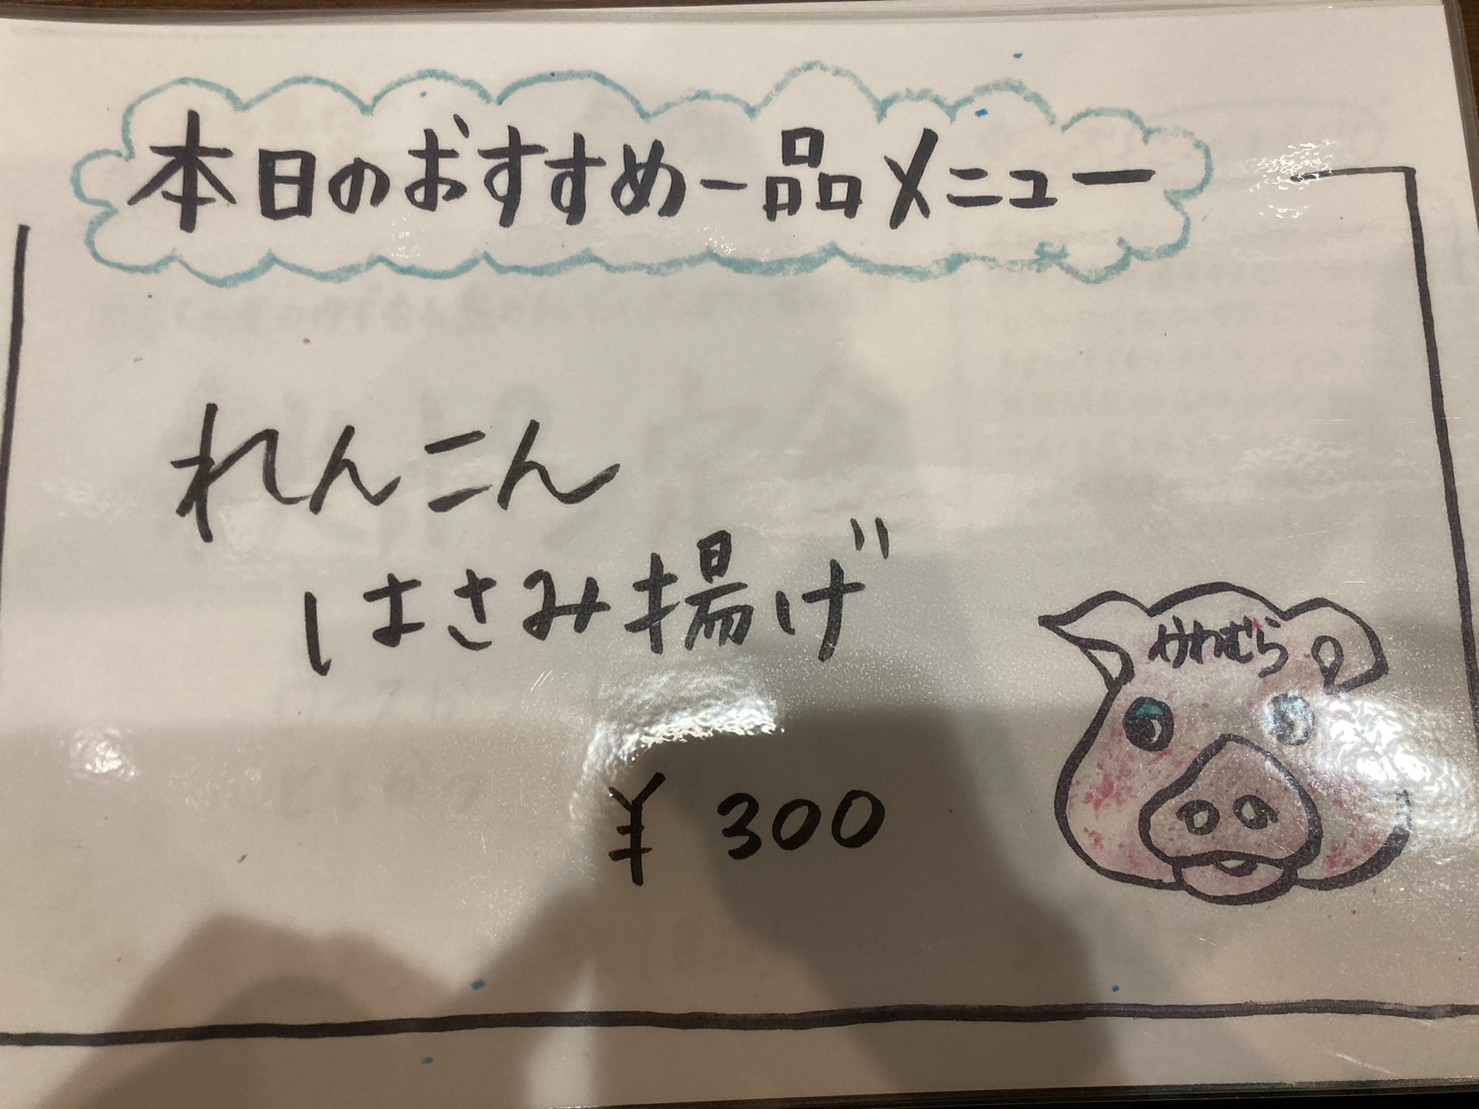 本日のおすすめ一品メニュー
れんこん
はさみ揚げ
かわむら
¥300